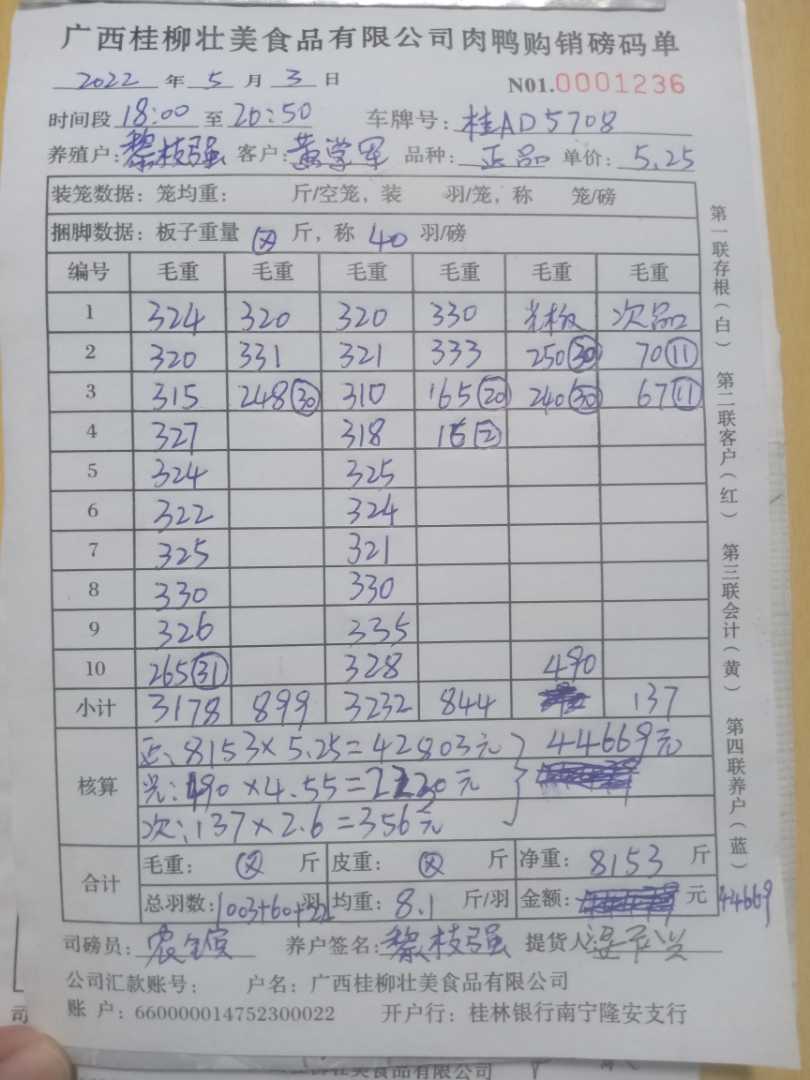 广西桂柳壮美食品有限公司肉鸭购销磅码单
2022 年 5 月 3 日 N01.0001236
时间段 18:00 至 20:50 车牌号: 桂AD5708
养殖户: 黎枝强 客户: 黄学军 品种: 正品 单价: 5.25
装笼数据: 笼均重: 斤/空笼, 装 羽/笼, 称 笼/磅
捆脚数据: 板子重量 斤, 称 40 羽/磅
编号 毛重 毛重 毛重 毛重 毛重 毛重
1 324 320 320 330 光板 次品
2 320 331 321 333 250(30) 70(11)
3 315 248(30) 310 165(20) 240(30) 67(11)
4 327 318 16(2)
5 324 325
6 322 324
7 325 321
8 330 330
9 326 335
10 265(31) 328 490
小计 3178 899 3232 844 137
核算 正:8153×5.25=42803元 44669元
光:490×4.55=2230元
次:137×2.6=356元
合计 毛重: 斤 皮重: 斤 净重: 8153 斤
总羽数: 1003+60+22 羽 均重: 8.1 斤/羽 金额: 元 44669
司磅员: 养户签名: 黎枝强 提货人
公司汇款账号: 户名: 广西桂柳壮美食品有限公司
账 户: 660000014752300022 开户行: 桂林银行南宁隆安支行
第一联存根(白) 第二联客户(红) 第三联会计(黄) 第四联养户(蓝)
司
壮美食品有限公司